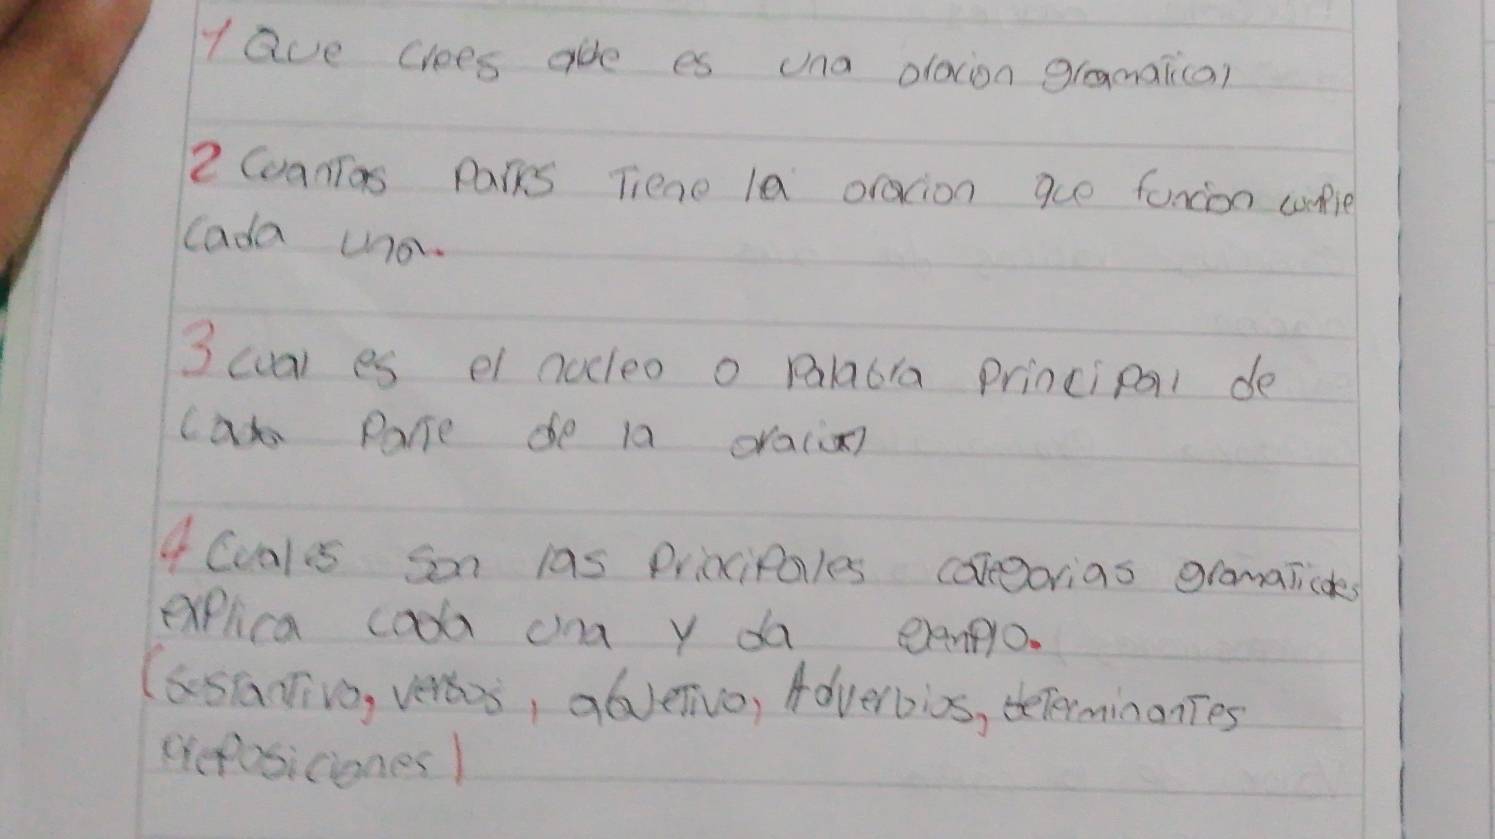 1 Que crees que es una oracion gramatical
2 Cuantas Partes Tiene la oracion que funcion cumple
cada una.
3 cual es el nucleo o Palabra Principal de
cada Parte de la oracion
4 Cuales son las Principales categorias gramaticales
explica cada una y da ejemplo.
(sustantivo, verbos, adjetivo, Adverbios, deTerminanTes
preposiciones)